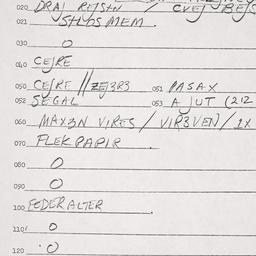 020 DRAJ / CVEJ
021 STLOS MEM.
030 O
040 CEJRE
050 CEJRE // ZEJ3R3 051 PASAX
052 SEGAL 053 A JUT (212
060 MAX3N VIRES / VIR3VEN / 1X
070 FLEKPAPIR
080 O
090 O
100 FEDERALTER
110 O
120 O